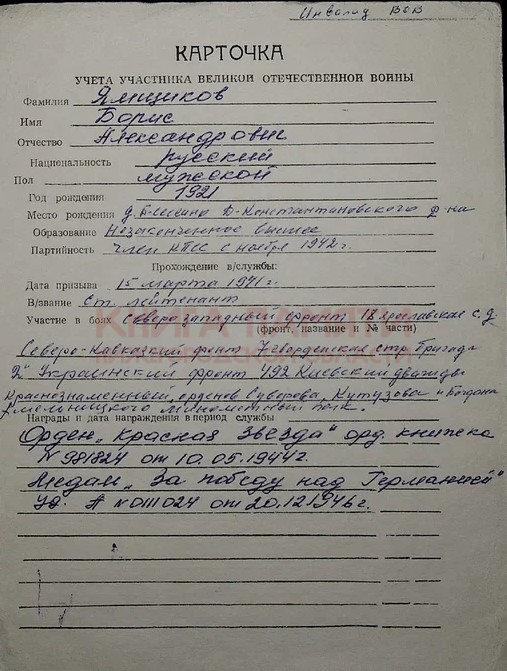 Инвалид ВОВ
КАРТОЧКА
УЧЕТА УЧАСТНИКА ВЕЛИКОЙ ОТЕЧЕСТВЕННОЙ ВОЙНЫ
Фамилия Ямщиков
Имя Борис
Отчество Александрович
Национальность русский
Пол мужской
Год рождения 1921
Место рождения д. Д-Константиновского р-на
Образование Незаконченное высшее
Партийность член КПСС с ноября 1942 г.
Прохождение в/службы:
Дата призыва 15 марта 1941 г.
В/звание Ст. лейтенант
Участие в боях Северо западный фронт 18 ярославская с. д.
(фронт, название и № части)
Северо-Кавказский фронт 7 гвардейская стр. бригада
2й Украинский фронт 492 Киевский дважды
Краснознаменный, орденов Суворова, Кутузова и Богдана
Хмельницкого минометный полк.
Награды и дата награждения в период службы
Орден „Красная Звезда" орд. книжка
N 981824 от 10.05.1944 г.
Медаль „За победу над Германией"
уд. А N 0111024 от 20.12.1946 г.
КНИГА ПАМЯТИ